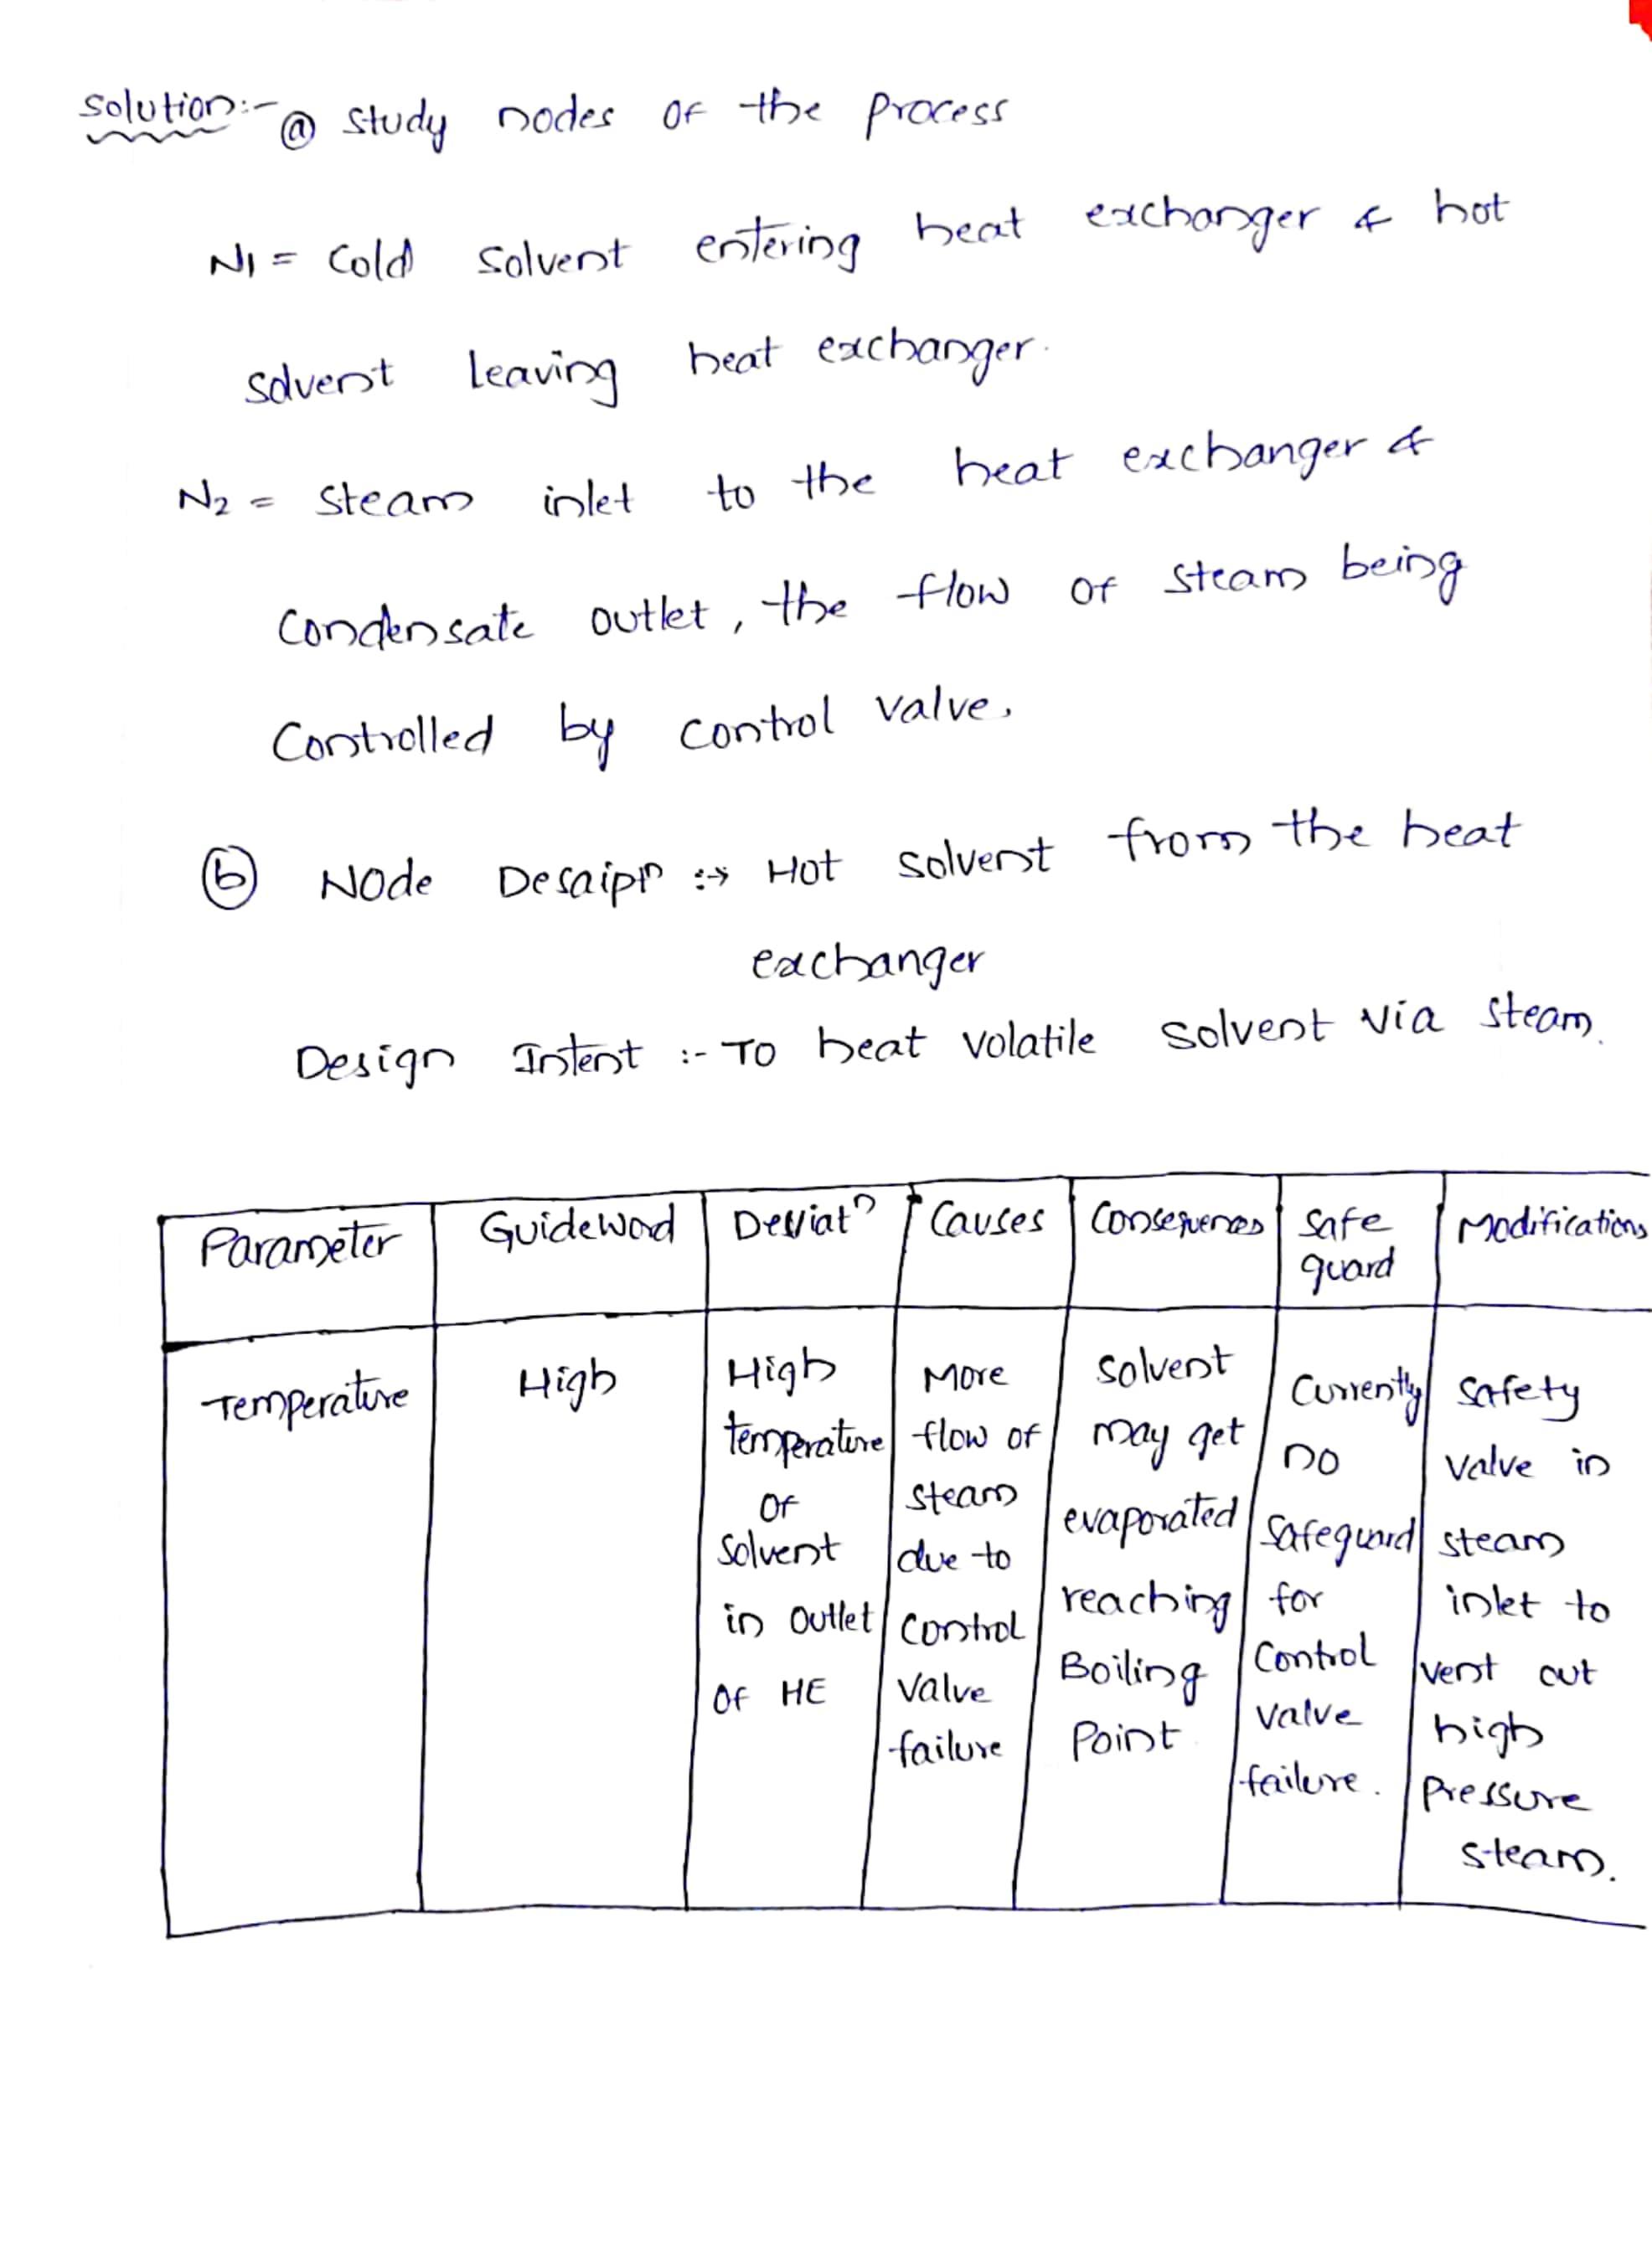 Solution:- ⓐ Study nodes of the process
N1 = Cold Solvent entering heat exchanger & hot
solvent leaving heat exchanger.
N2 = Steam inlet to the heat exchanger &
Condensate outlet, the flow of steam being
Controlled by control valve.
ⓑ Node Descripn :→ Hot solvent from the heat
exchanger
Design Intent :- To heat volatile solvent via steam.
Parameter GuideWord Deviatn Causes Consequences Safe guard Modifications
Temperature High
High
temperature
of
Solvent
in outlet
of HE
More
flow of
steam
due to
control
valve
failure
Solvent
may get
evaporated
reaching
Boiling
Point
Currently
no
Safeguard
for
control
valve
failure.
Safety
valve in
steam
inlet to
vent out
high
Pressure
steam.